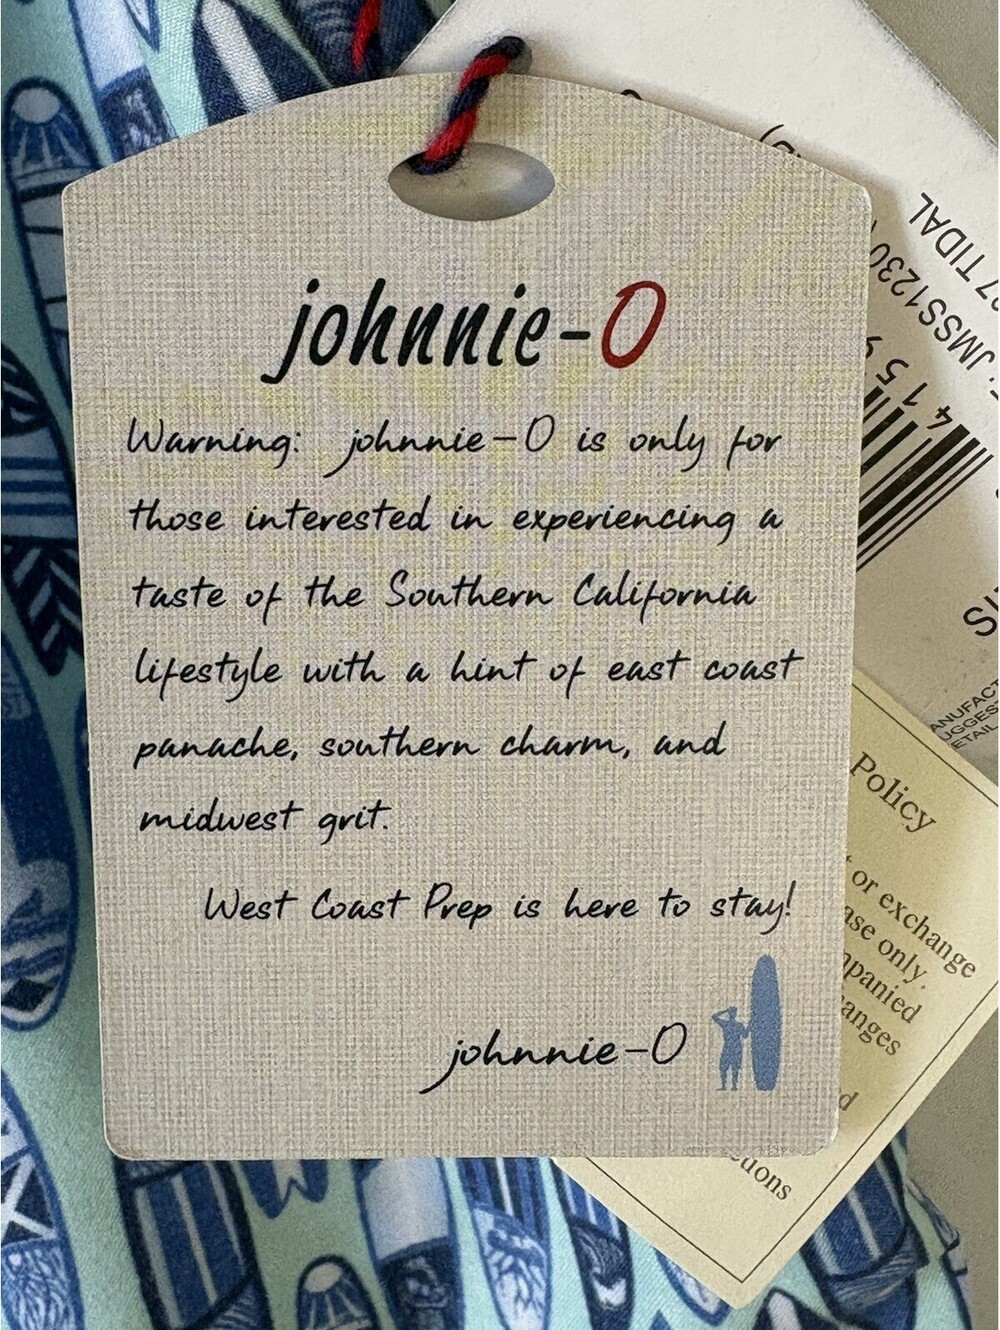 johnnie-O
Warning: johnnie-O is only for
those interested in experiencing a
taste of the Southern California
lifestyle with a hint of east coast
panache, southern charm, and
midwest grit.
West Coast Prep is here to stay!
johnnie-O
TIDAL
JMSS1230
4 1 5
Policy
or exchange
only.